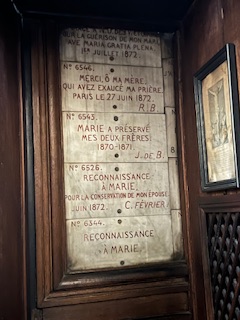 SUR LA GUÉRISON DE MON MARI
AVE MARIA GRATIA PLENA
JUILLET 1872.
N° 6546.
MERCI, Ô MA MÈRE,
QUI AVEZ EXAUCÉ MA PRIÈRE
PARIS LE 27 JUIN 1872.
R. B.
N° 6545.
MARIE A PRÉSERVÉ
MES DEUX FRÈRES!
1870-1871.
J. DE B.
N° 6526.
RECONNAISSANCE
À MARIE,
POUR LA CONSERVATION DE MON ÉPOUSE
JUIN 1872. C. FÉVRIER
N° 6344.
RECONNAISSANCE
À MARIE